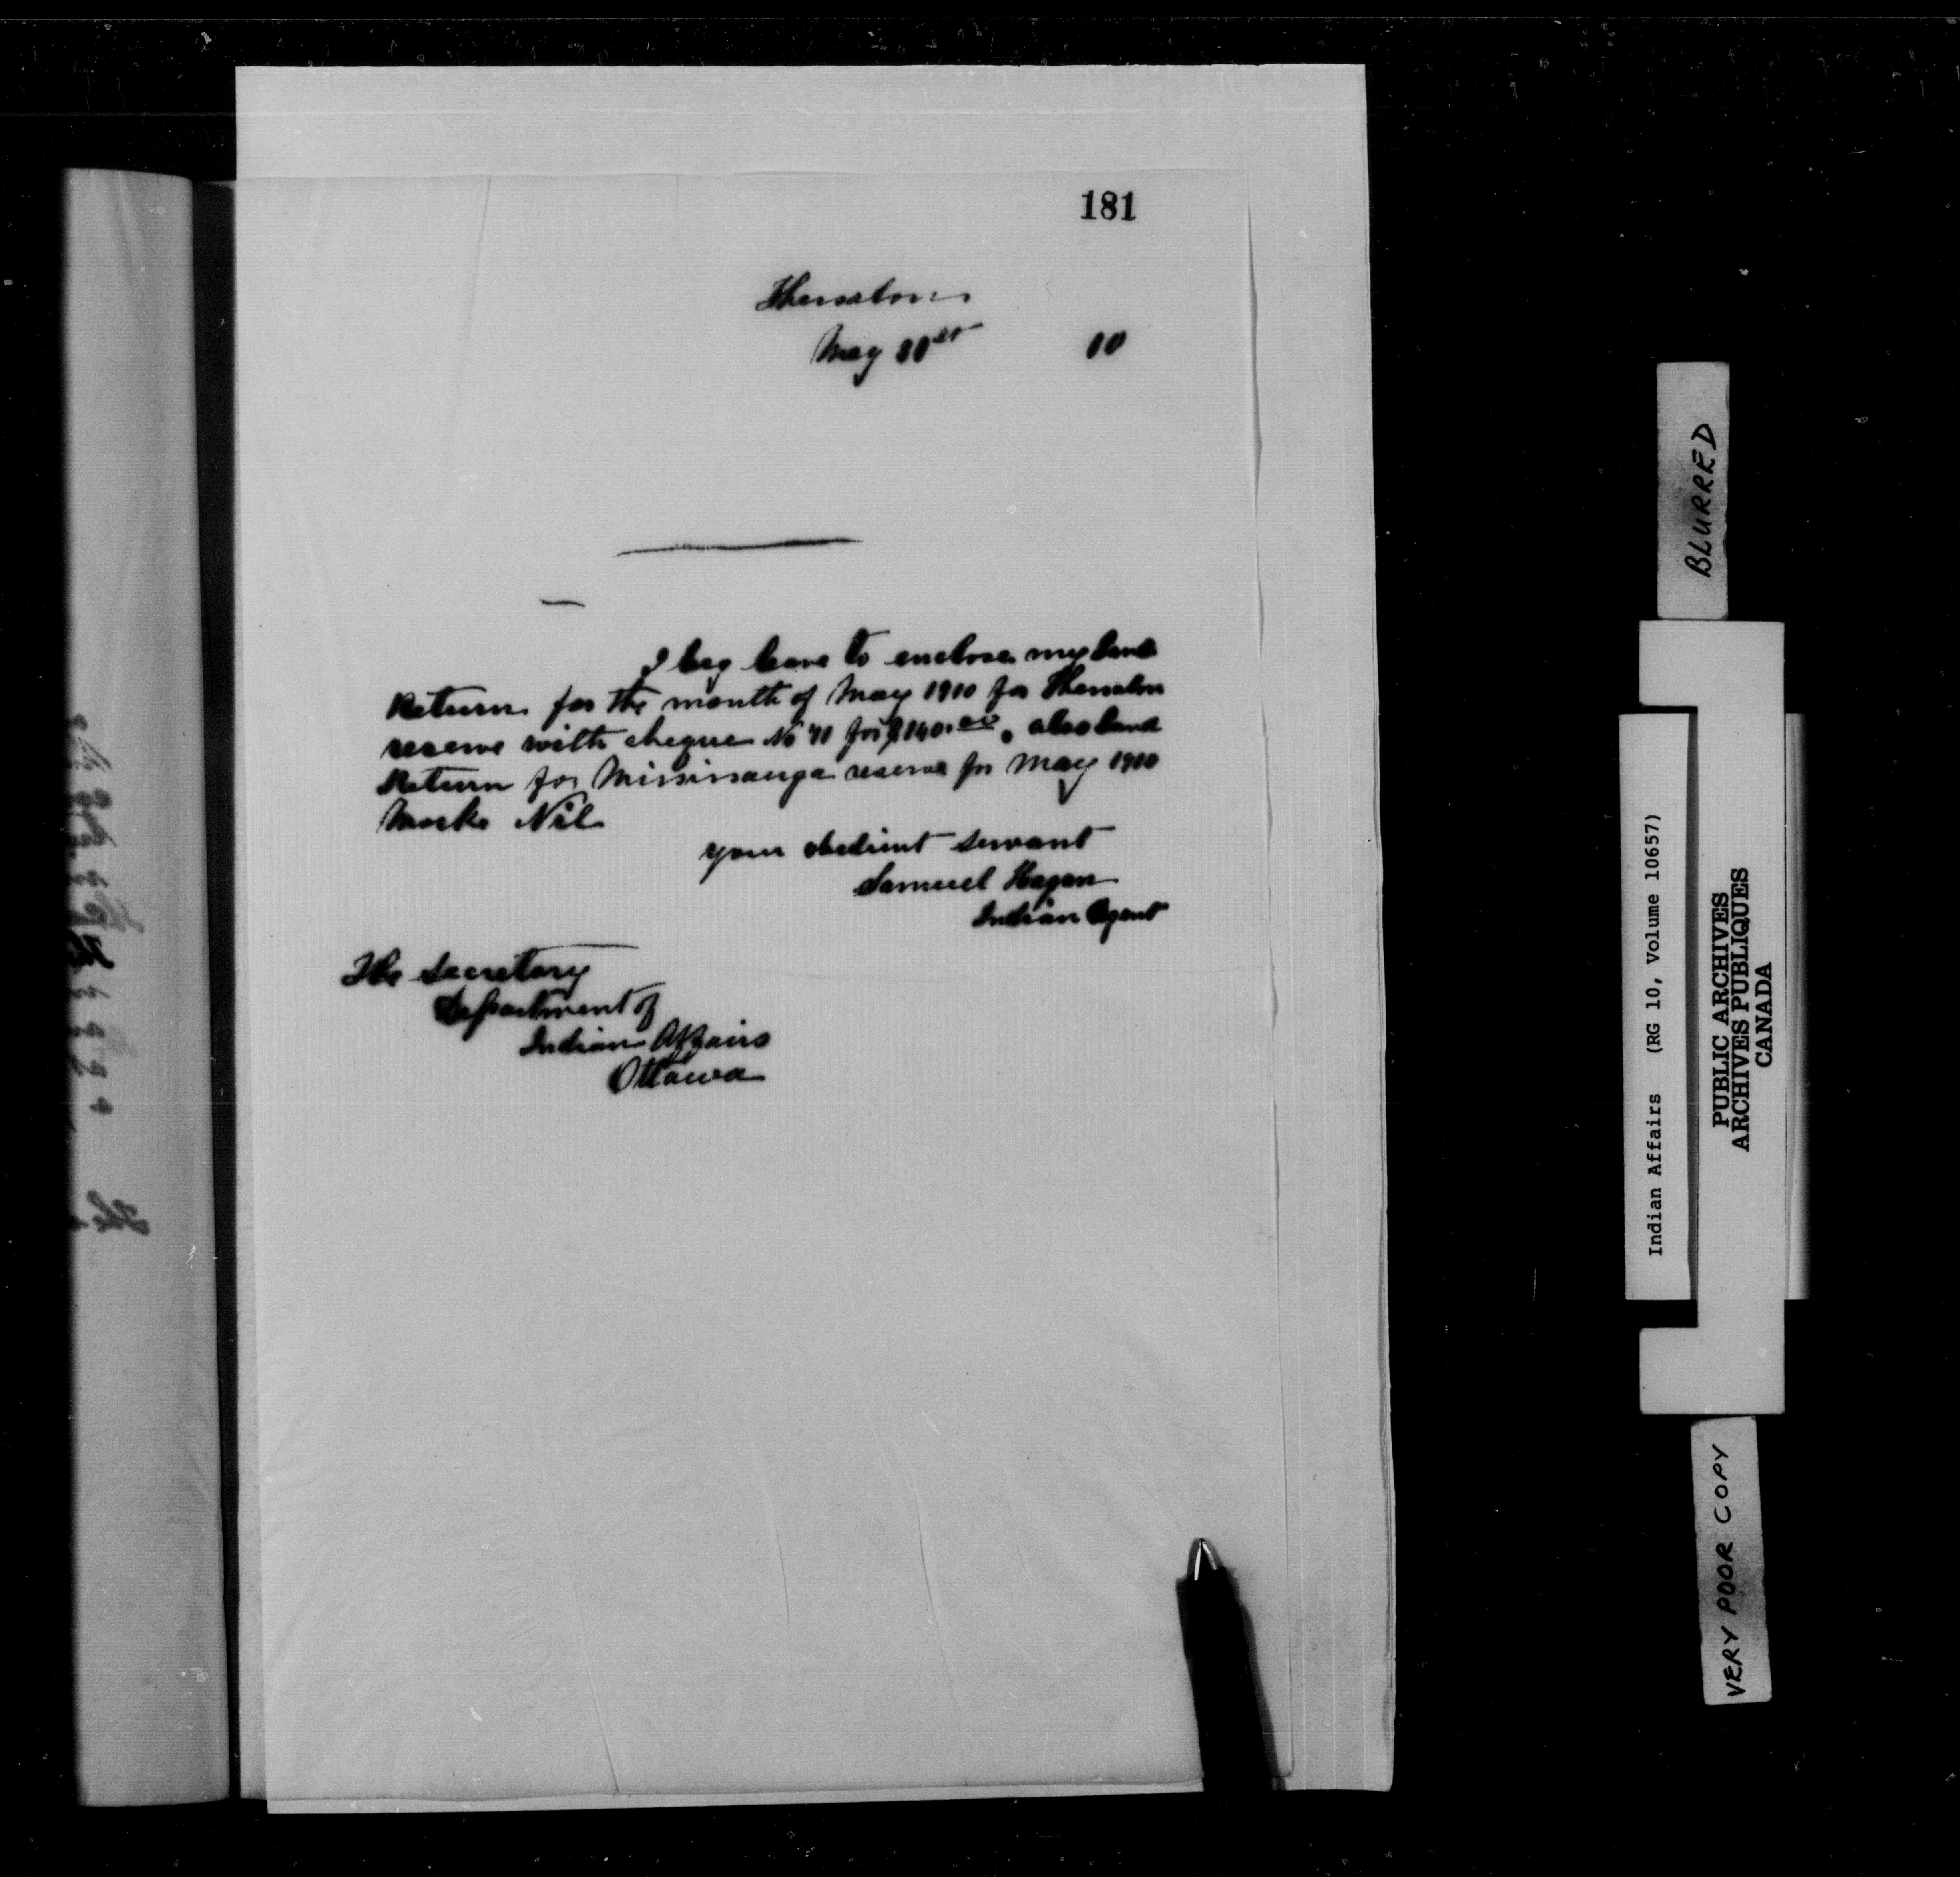 181
Thessalon
May 31st 10
I beg leave to enclose my Land
Return for the month of May 1910 for Thessalon
reserve with cheque No 71 for $140.00, also Land
Return for Mississauga reserve for May 1910
Marke Nil
your obedient servant
Samuel Hagan
Indian Agent
The Secretary
Department of
Indian Affairs
Ottawa
BLURRED
Indian Affairs (RG 10, Volume 10657)
PUBLIC ARCHIVES
ARCHIVES PUBLIQUES
CANADA
VERY POOR COPY